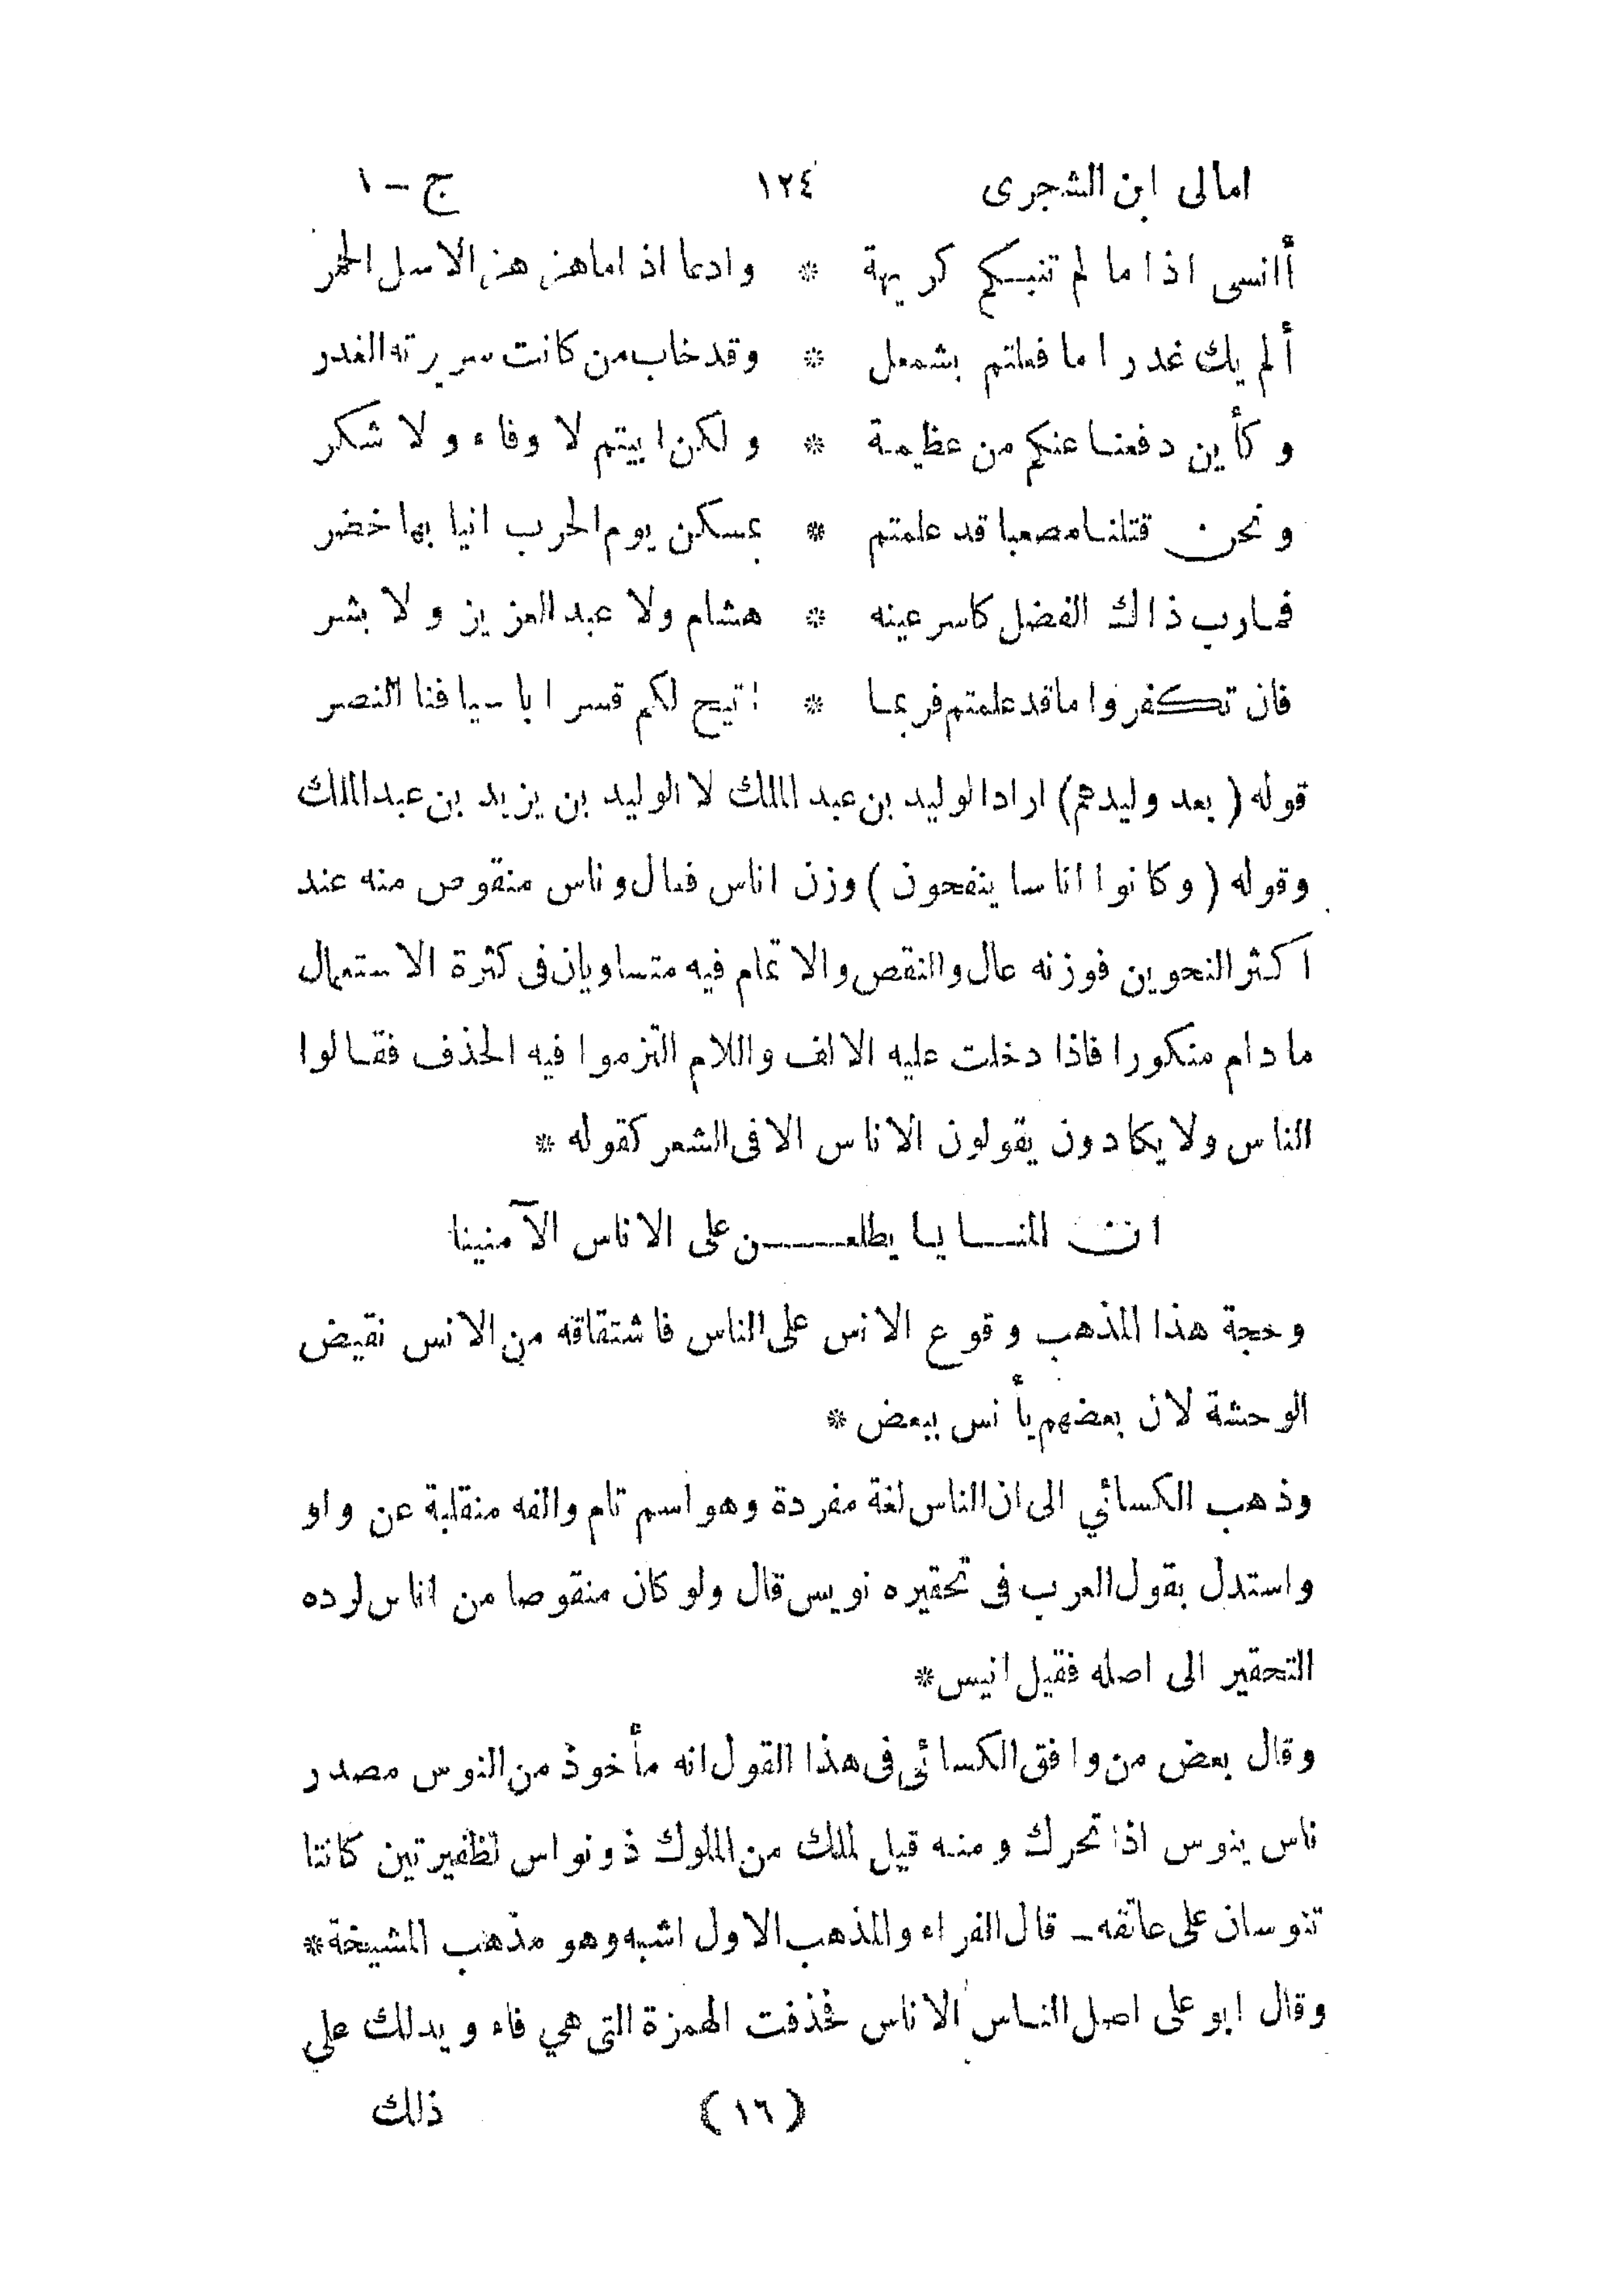 امالى ابن الشجرى ١٢٤ ج – ١
أانسى اذا ما لم تنبكم كريهة * وادعا اذ اماهز هز الاسل الحمر
ألم يك غدرا ما فعلتم بشمعل * وقد خاب من كانت سريرته الغدر
وكأين دفعنا عنكم من عظيمة * ولكن ابيتم لا وفاء ولا شكر
ونحن قتلنا مصعبا قد علمتم * بمسكن يوم الحرب انيابها خضر
فمارب ذاك الفضل كاسر عينه * هشام ولا عبد العزيز ولا بشر
فان تكفروا ما قد علمتم فربما * اتيح لكم قسرا باسيافنا النصر
قوله (بعد وليدهم) اراد الوليد بن عبد الملك لا الوليد بن يزيد بن عبد الملك
وقوله (وكانوا اناسا ينفحون) وزن اناس فعال وناس منقوص منه عند
اكثر النحوين فوزنه عال والنقص والاتمام فيه متساويان فى كثرة الاستعمال
ما دام منكورا فاذا دخلت عليه الالف واللام التزموا فيه الحذف فقالوا
الناس ولا يكادون يقولون الاناس الا فى الشعر كقوله *
ان المنايا يطلعن على الاناس الآمنينا
وحجة هذا المذهب وقوع الانس على الناس فاشتقاقه من الانس نقيض
الوحشة لان بعضهم يأنس ببعض *
وذهب الكسائي الى ان الناس لغة مفردة وهو اسم تام والفه منقلبة عن واو
واستدل بقول العرب فى تحقيره نويس قال ولو كان منقوصا من اناس لرده
التحقير الى اصله فقيل انيس *
وقال بعض من وافق الكسائى فى هذا القول انه مأخوذ من النوس مصدر
ناس ينوس اذا تحرك ومنه قيل لملك من الملوك ذونواس لظفيرتين كانتا
تنوسان على عاتقه – قال الفراء والمذهب الاول اشبه وهو مذهب المشيخة *
وقال ابو على اصل الناس الاناس فحذفت الهمزة التى هي فاء ويدلك على
(١٦) ذلك